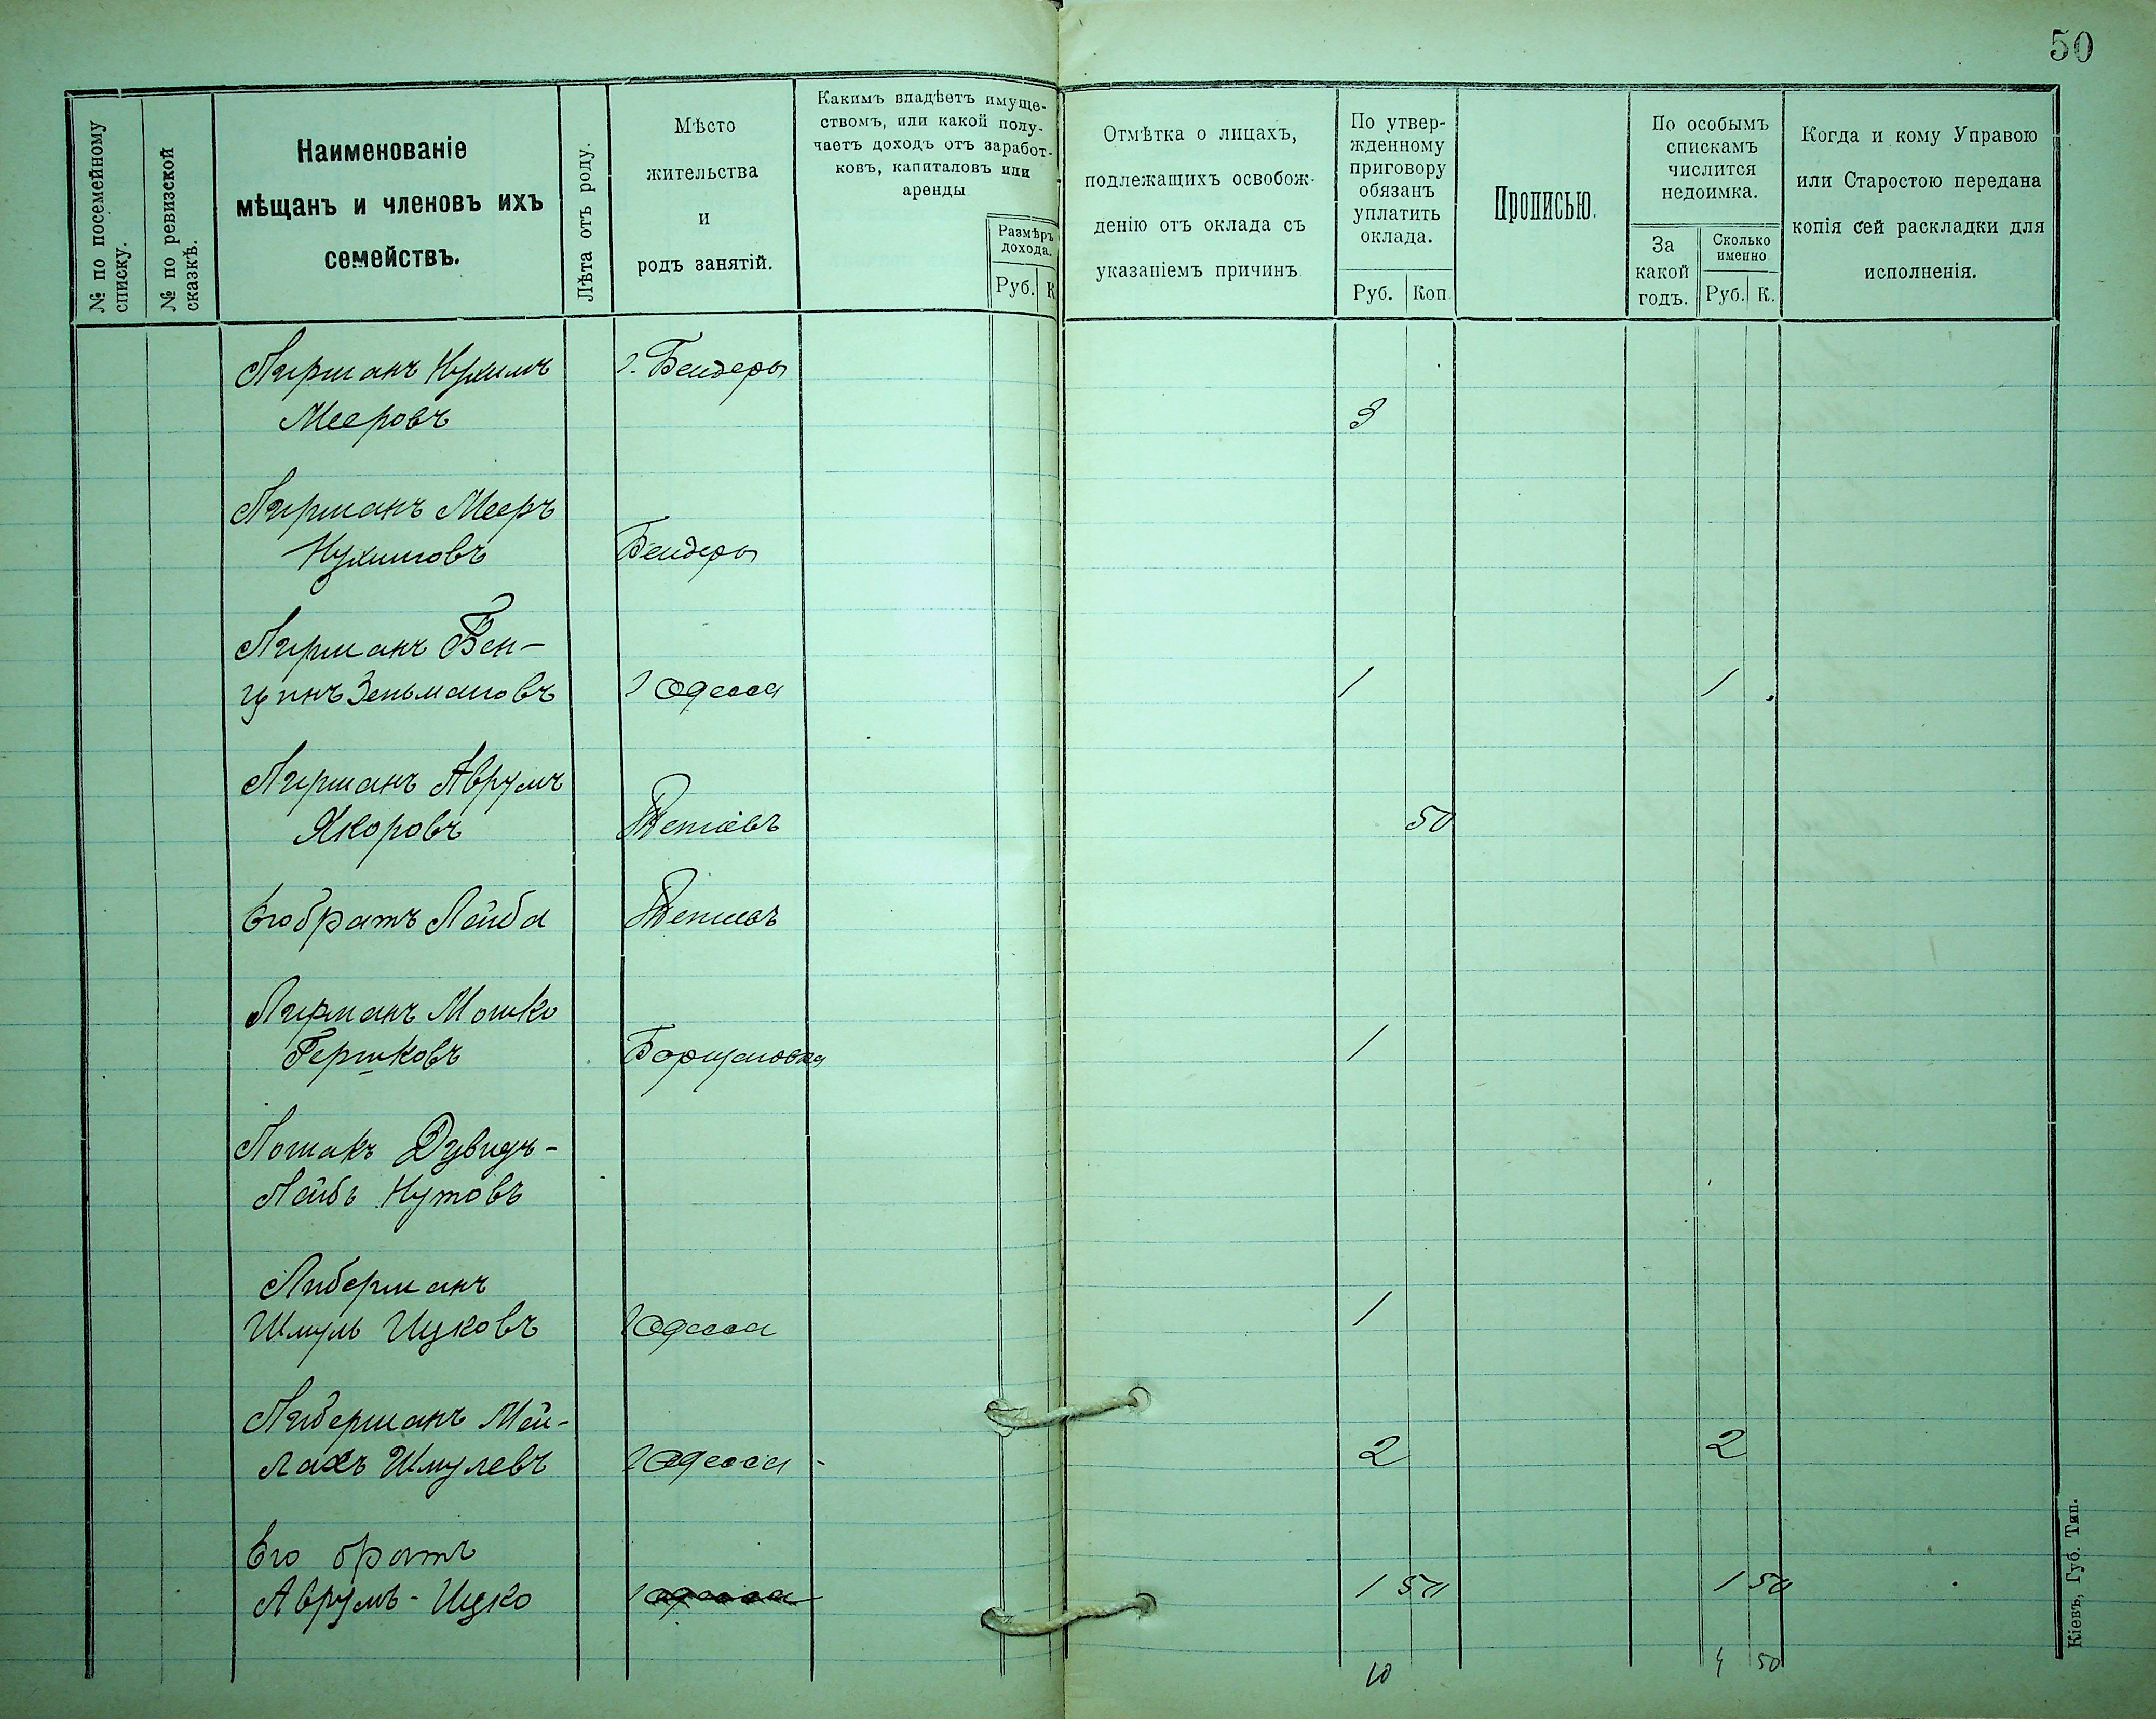 50
№ по посемейному
списку.
№ по ревизской
сказкѣ.
Наименованіе
мѣщанъ и членовъ ихъ
семействъ.
Лѣта отъ роду.
Мѣсто
жительства
и
родъ занятій.
Какимъ владѣетъ имуще-
ствомъ, или какой полу-
чаетъ доходъ отъ заработ-
ковъ, капиталовъ или
аренды
Размѣръ
дохода.
Руб. К
Отмѣтка о лицахъ,
подлежащихъ освобож-
денію отъ оклада съ
указаніемъ причинъ
По утвер-
жденному
приговору
обязанъ
уплатить
оклада.
Руб. Коп
Прописью.
По особымъ
спискамъ
числится
недоимка.
За
какой
годъ.
Сколько
именно
Руб. К.
Когда и кому Управою
или Старостою передана
копія сей раскладки для
исполненія.
Лирманъ Нухимъ г. Бендеры
Мееровъ 3
Лирманъ Мееръ
Нухимовъ Бендеры
Лирманъ Бен-
ционъ Зельмановъ г Одесса 1 1
Лирманъ Аврумъ
Якоровъ 50
Его братъ Лейба
Лирманъ Мошко
Гершковъ Борщаговка 1
Лошакъ Дувидъ-
Лейбъ Нутовъ
Либерманъ
Шмуль Ицковъ г Одесса 1
Либерманъ Мей-
лахъ Шмулевъ г Одесса - 2 2
Его братъ
Аврумъ-Ицко г Одесса 1 50 1 50
10 4 50
Кіевъ, Губ. Тип.